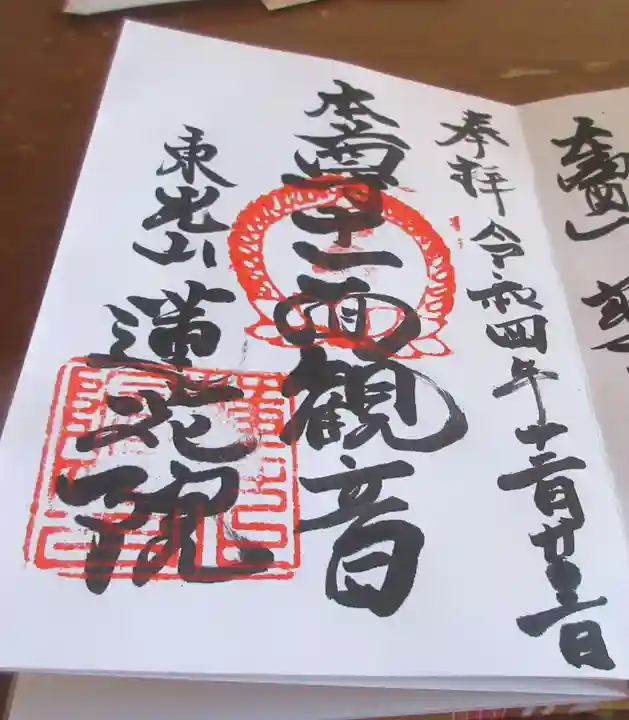 奉拝 令和四年十二月廿三日
本尊十一面観音
東光山 蓮花院